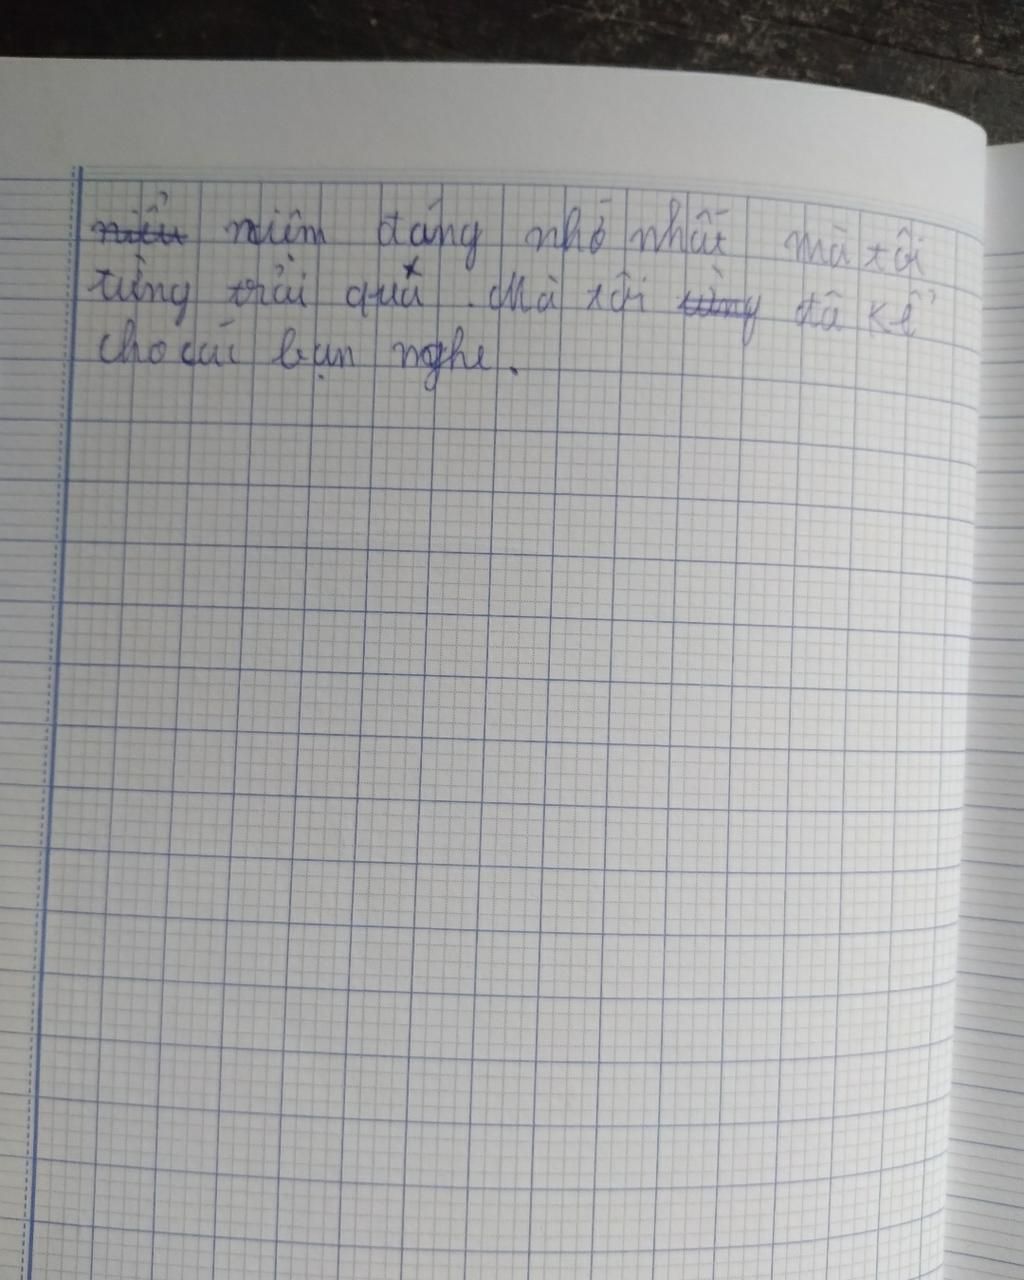 niệm đáng nhớ nhất mà tôi
từng trải quá. Mà tôi đã kể
cho các bạn nghe.